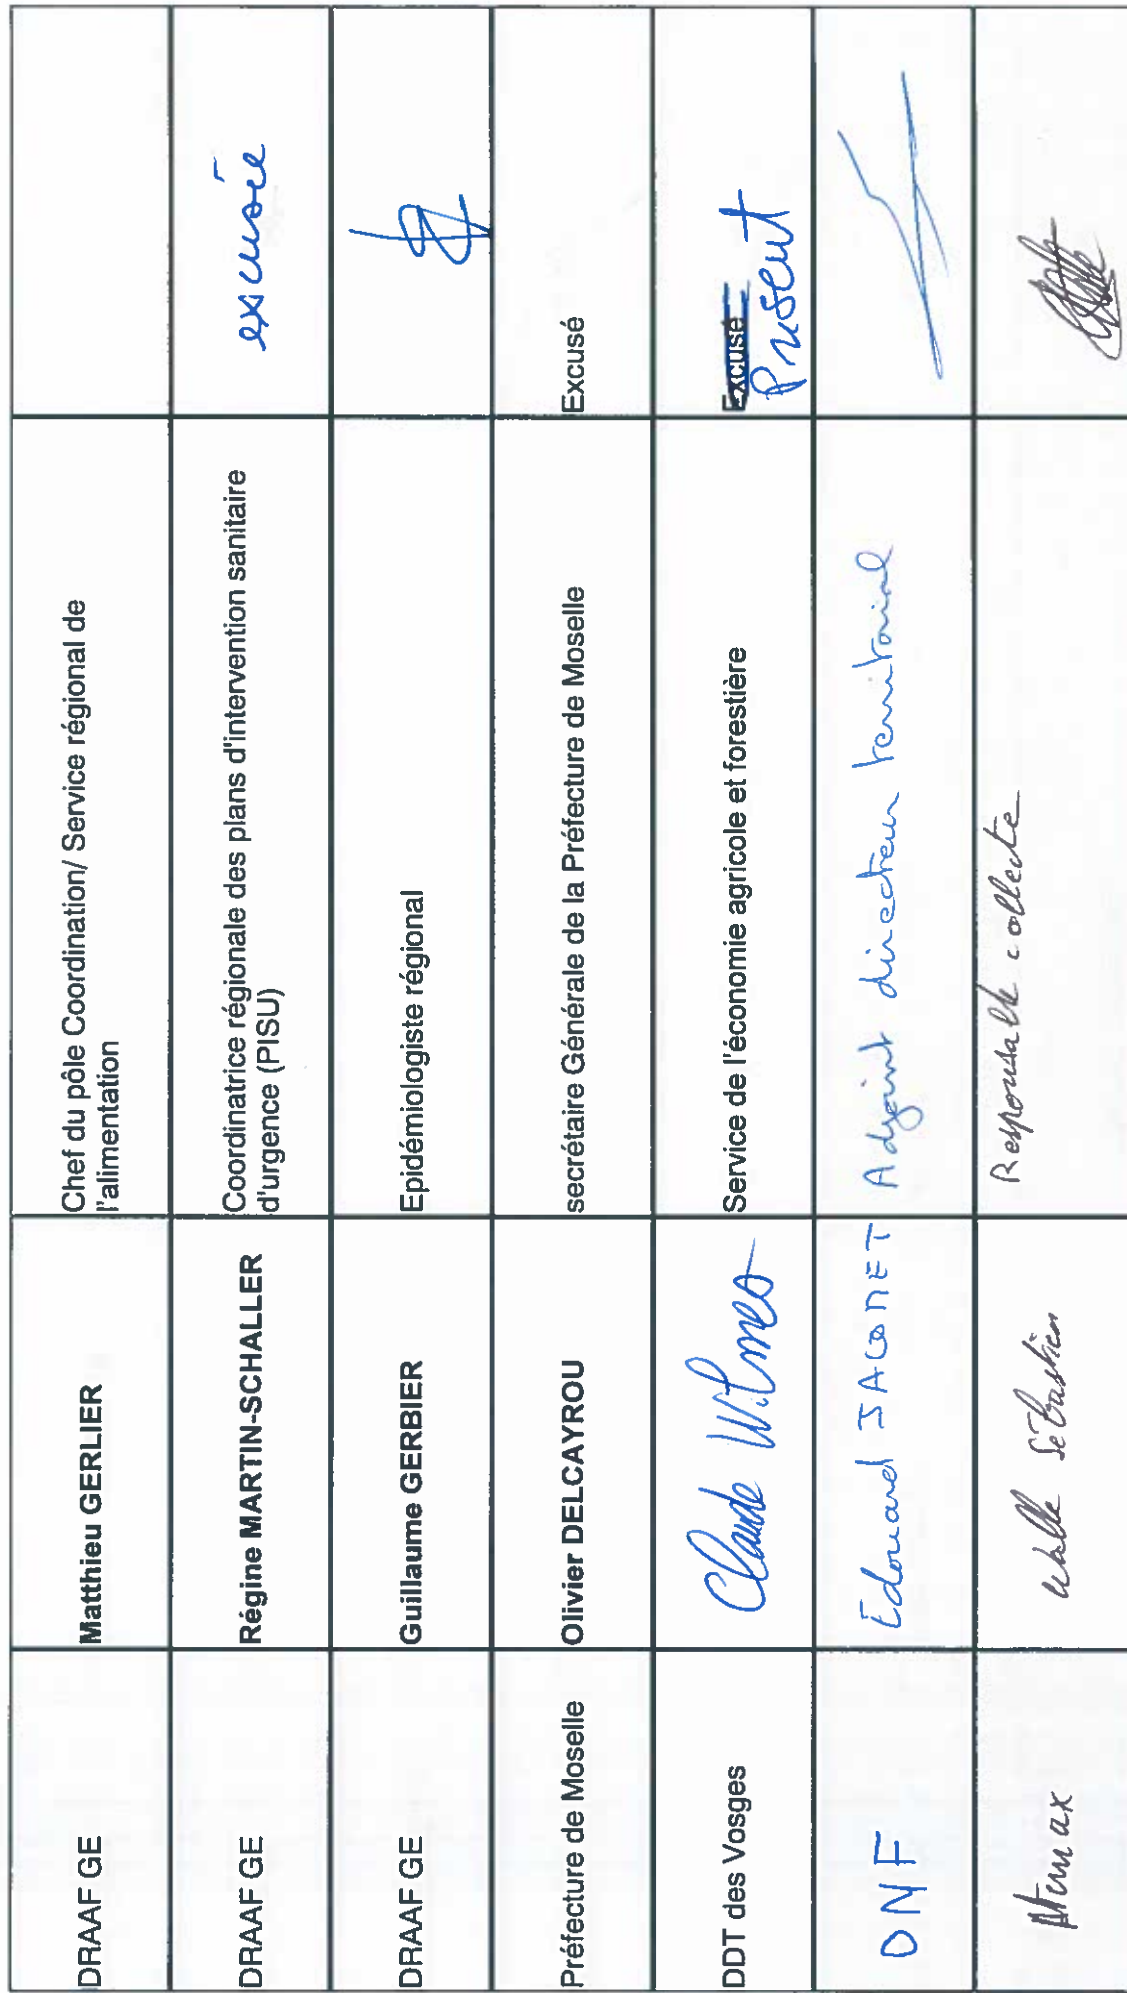 DRAAF GE
Matthieu GERLIER
Chef du pôle Coordination/ Service régional de
l'alimentation
DRAAF GE
Régine MARTIN-SCHALLER
Coordinatrice régionale des plans d'intervention sanitaire
d'urgence (PISU)
excusée
DRAAF GE
Guillaume GERBIER
Epidémiologiste régional
Préfecture de Moselle
Olivier DELCAYROU
secrétaire Générale de la Préfecture de Moselle
Excusé
DDT des Vosges
Claude Wilmes
Service de l'économie agricole et forestière
Excusé
Présent
ONF
Edouard JACOMET
Adjoint directeur territorial
Atemax
Sébastien
Responsable collecte